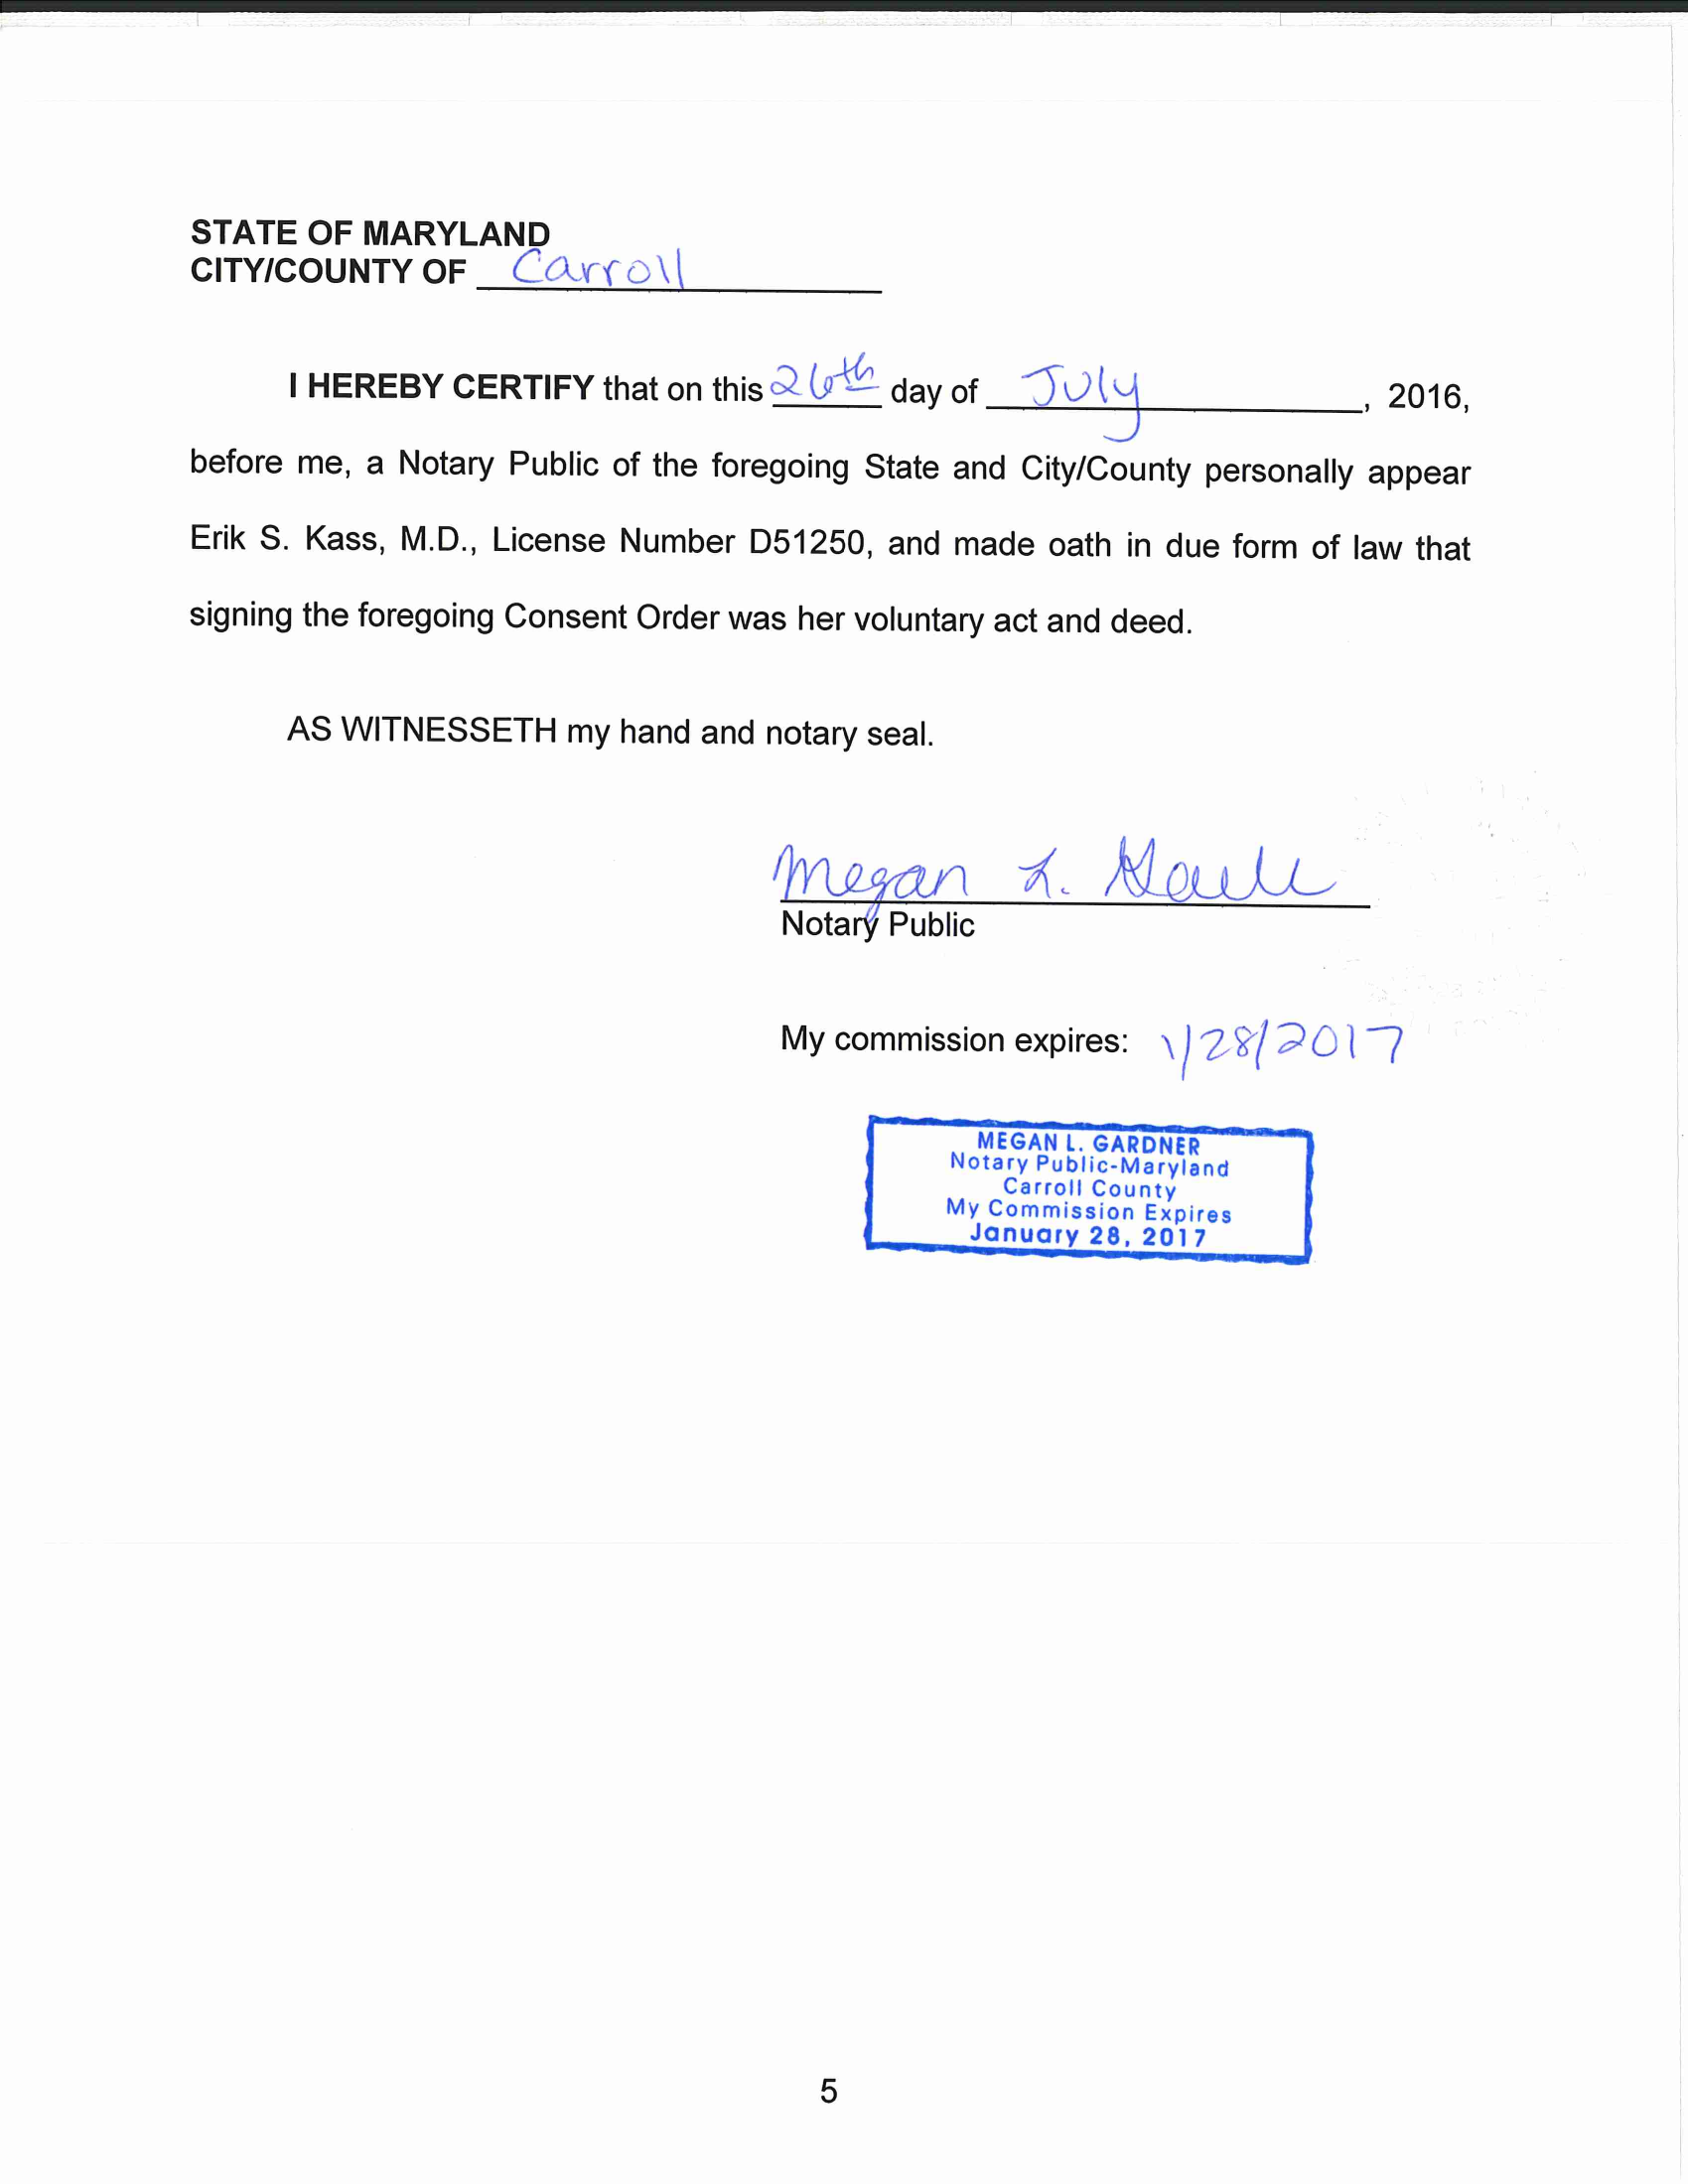 STATE OF MARYLAND
CITY/COUNTY OF Carroll
I HEREBY CERTIFY that on this 26th day of July, 2016,
before me, a Notary Public of the foregoing State and City/County personally appear
Erik S. Kass, M.D., License Number D51250, and made oath in due form of law that
signing the foregoing Consent Order was her voluntary act and deed.
AS WITNESSETH my hand and notary seal.
Megan L.
Notary Public
My commission expires: 1/28/2017
MEGAN L. GARDNER
Notary Public-Maryland
Carroll County
My Commission Expires
January 28, 2017
5